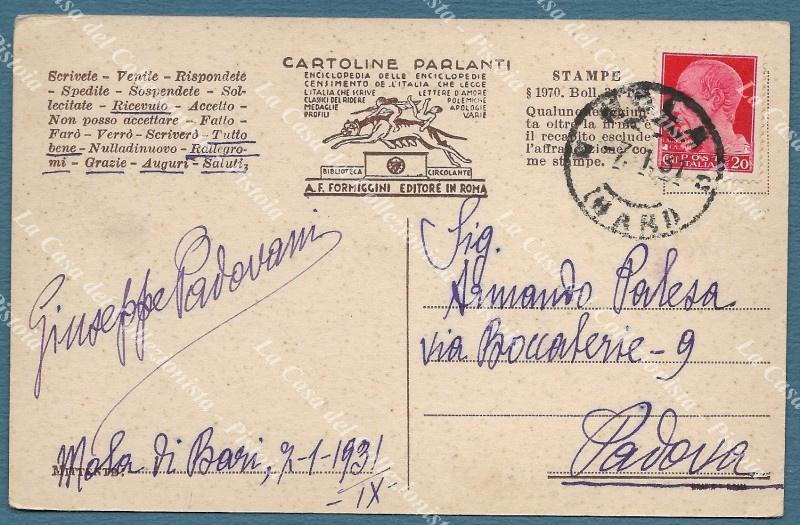 Scrivete - Venite - Rispondete
- Spedite - Sospendete - Sol-
lecitate - Ricevuto - Accetto -
Non posso accettare - Fatto -
Farò - Verrò - Scriverò - Tutto
bene - Nulladinuovo - Rallegro-
mi - Grazie - Auguri - Saluti,
CARTOLINE PARLANTI
ENCICLOPEDIA DELLE ENCICLOPEDIE
CENSIMENTO DE L'ITALIA CHE LEGGE
L'ITALIA CHE SCRIVE LETTERE D'AMORE
CLASSICI DEL RIDERE POLEMICHE
MEDAGLIE APOLOGIE
PROFILI VARIE
BIBLIOTECA CIRCOLANTE
A. F. FORMIGGINI EDITORE IN ROMA
STAMPE
§ 1970. Boll.
Qualunque aggiun
ta oltre la firma
il recapito esclude
l'affrancazione co
me stampe.
POSTE
ITALIANE
20
(BARI)
Giuseppe Padovani
Mola di Bari, 2-1-1931
-IX-
MITTENTE:
Sig.
Armando Palesa
via Boccalerie - 9
Padova
La Casa del Collezionista - Pistoia